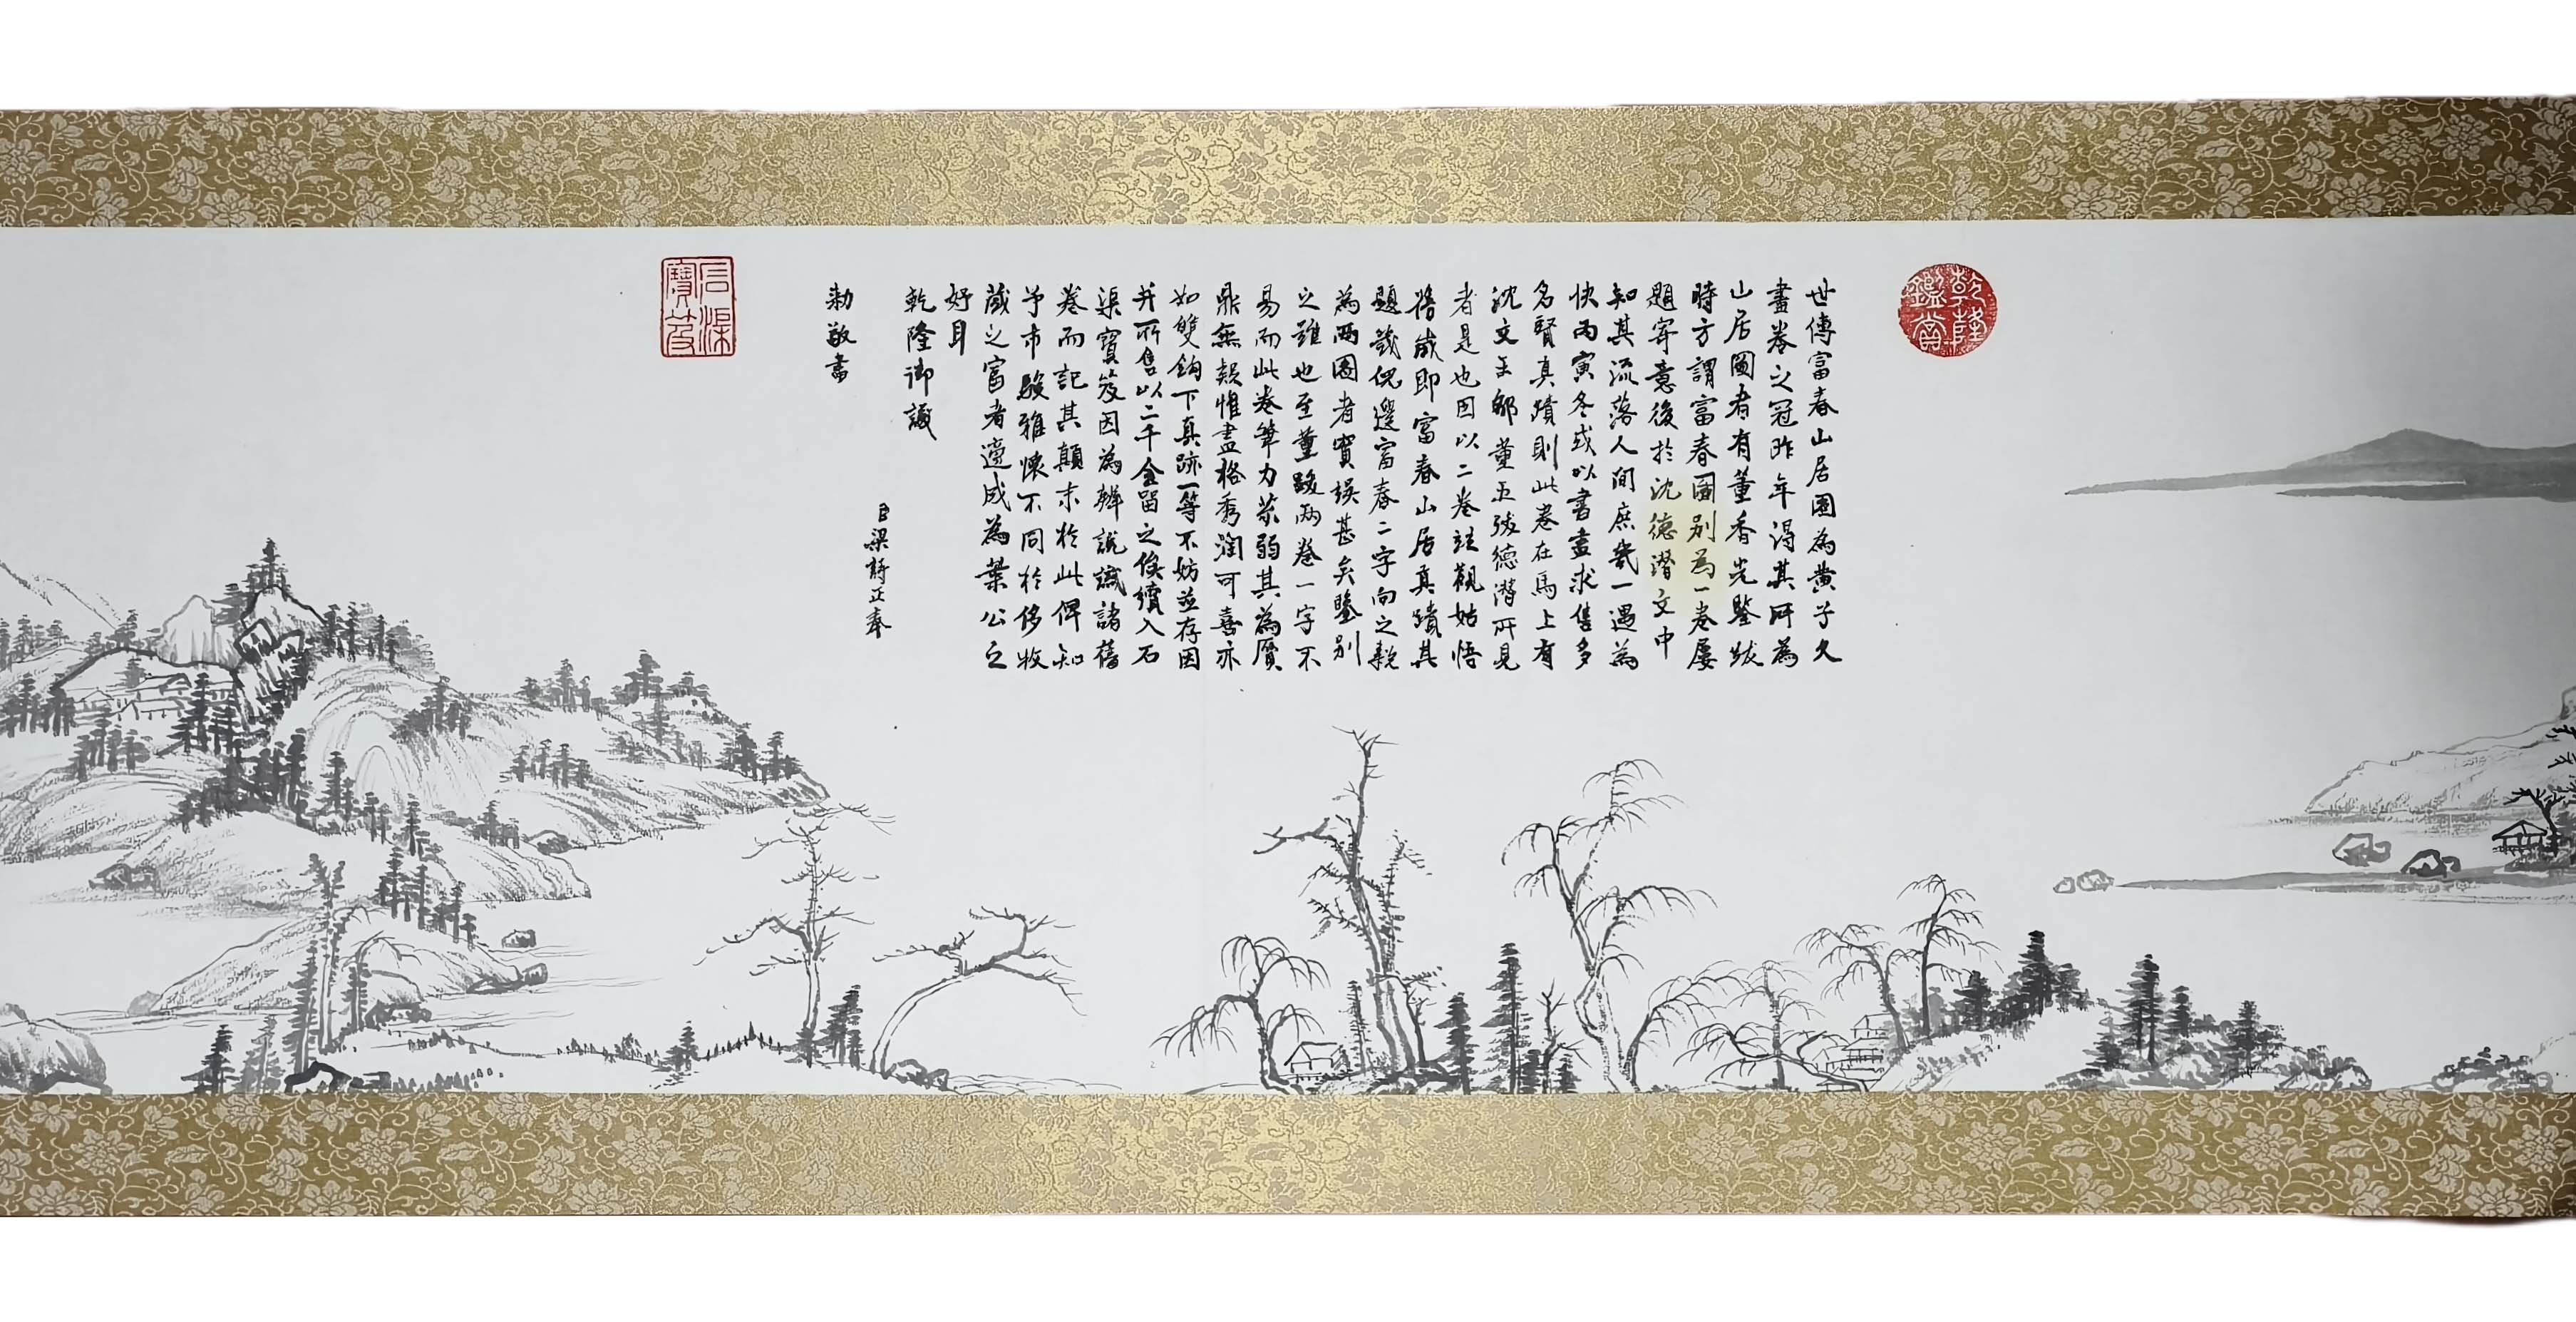 乾隆鑑賞
世傳富春山居圖為黄子久
畫卷之冠昨年得其所為
山居圖者有董香光鑒跋
時方謂富春圖别為一卷屢
題寄意後於沈德潛文中
知其流落人間庶幾一遇為
快丙寅冬或以書畫求售多
名賢真蹟則此卷在焉上有
沈文王鄒董五跋德潛所見
者是也因以二卷諦觀始悟
舊藏即富春山居真蹟其
題籤偶遺富春二字向之疑
為兩圖者實悮甚矣鑒别
之難也至董跋兩卷一字不
易而此卷筆力苶弱其為贋
鼎無疑惟畫格秀潤可喜亦
如雙鈎下真跡一等不妨並存因
并所售以二千金留之俟續入石
渠寶笈因為辨說識諸舊
卷而記其顛末於此俾知
予市駿雅懷不同於侈收
藏之富者適成為葉公之
好耳
乾隆御識
臣梁詩正奉
勅敬書
石渠寶笈